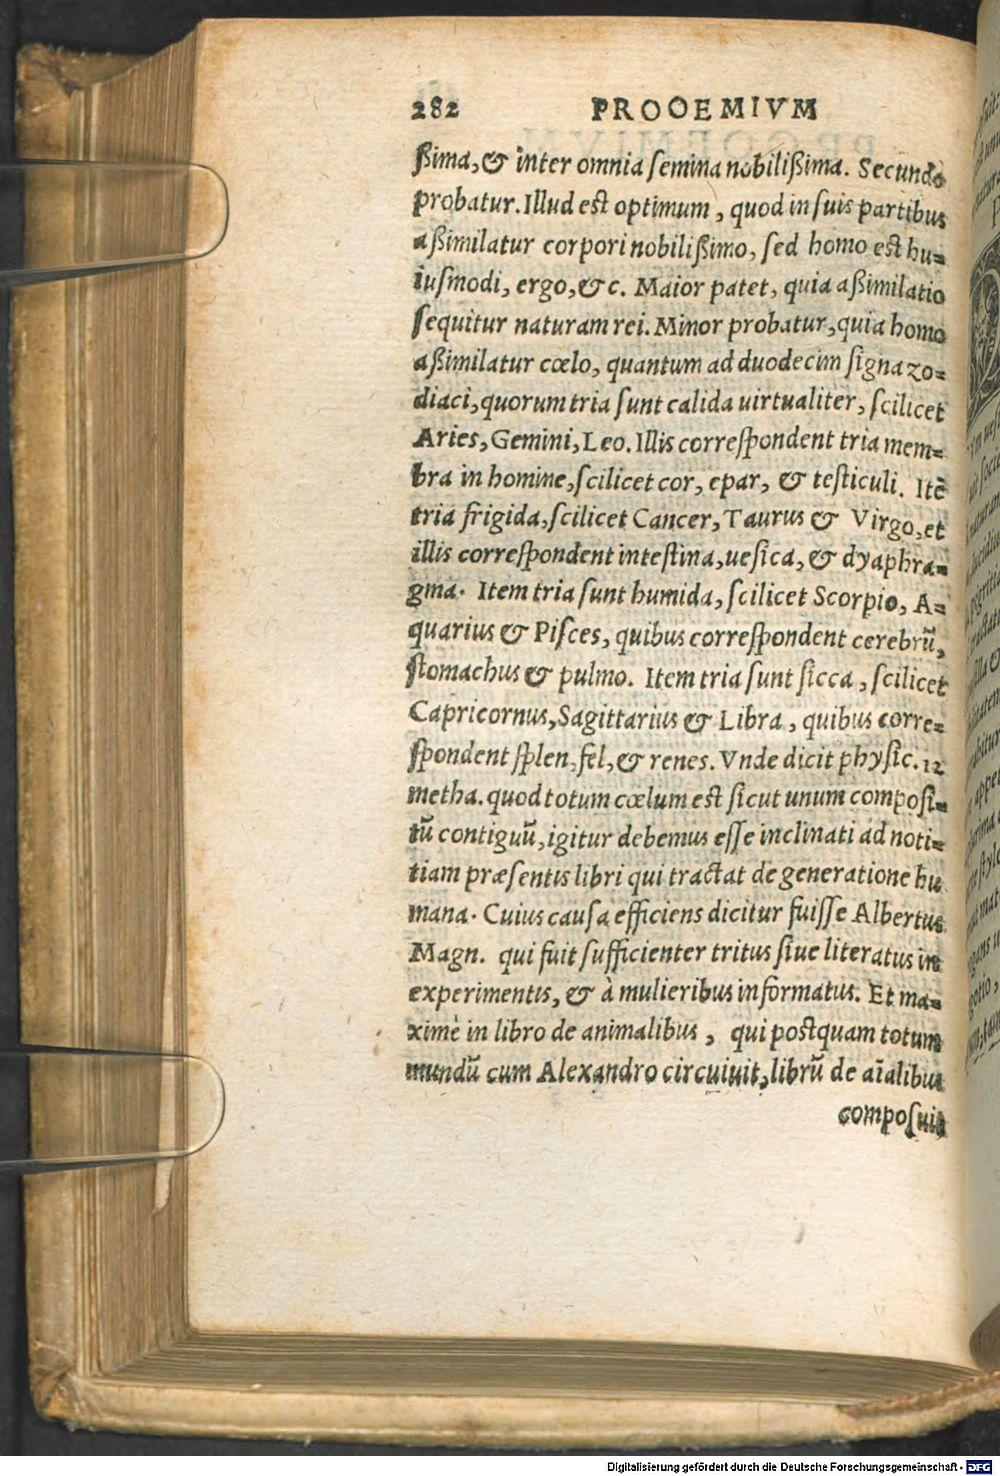 282 PROOEMIVM
ßima, & inter omnia ſemina nobilißima. Secundo
probatur. Illud est optimum, quod in ſuis partibus
aßimilatur corpori nobilißimo, ſed homo est hu=
iuſmodi, ergo, &c. Maior patet, quia aßimilatio
ſequitur naturam rei. Minor probatur, quia homo
aßimilatur cœlo, quantum ad duodecim ſigna zo=
diaci, quorum tria ſunt calida uirtualiter, ſcilicet
Aries, Gemini, Leo. Illis correſpondent tria mem=
bra in homine, ſcilicet cor, epar, & teſticuli. Itẽ
tria frigida, ſcilicet Cancer, Taurus & Virgo, et
illis correſpondent inteſtina, ueſica, & dyaphra=
gma. Item tria ſunt humida, ſcilicet Scorpio, A=
quarius & Piſces, quibus correſpondent cerebrũ,
ſtomachus & pulmo. Item tria ſunt ſicca, ſcilicet
Capricornus, Sagittarius & Libra, quibus corre=
ſpondent ſplen, fel, & renes. Vnde dicit phyſic. 12
metha. quod totum cœlum est ſicut unum compoſi=
tũ contiguũ, igitur debemus eſſe inclinati ad noti=
tiam præſentis libri qui tractat de generatione hu
mana. Cuius cauſa efficiens dicitur fuiſſe Albertus
Magn. qui fuit ſufficienter tritus ſiue literatus in
experimentis, & à mulieribus informatus. Et ma=
ximè in libro de animalibus, qui postquam totum
mundũ cum Alexandro circuiuit, librũ de aĩalibus
compoſuit
Digitalisierung gefördert durch die Deutsche Forschungsgemeinschaft - DFG